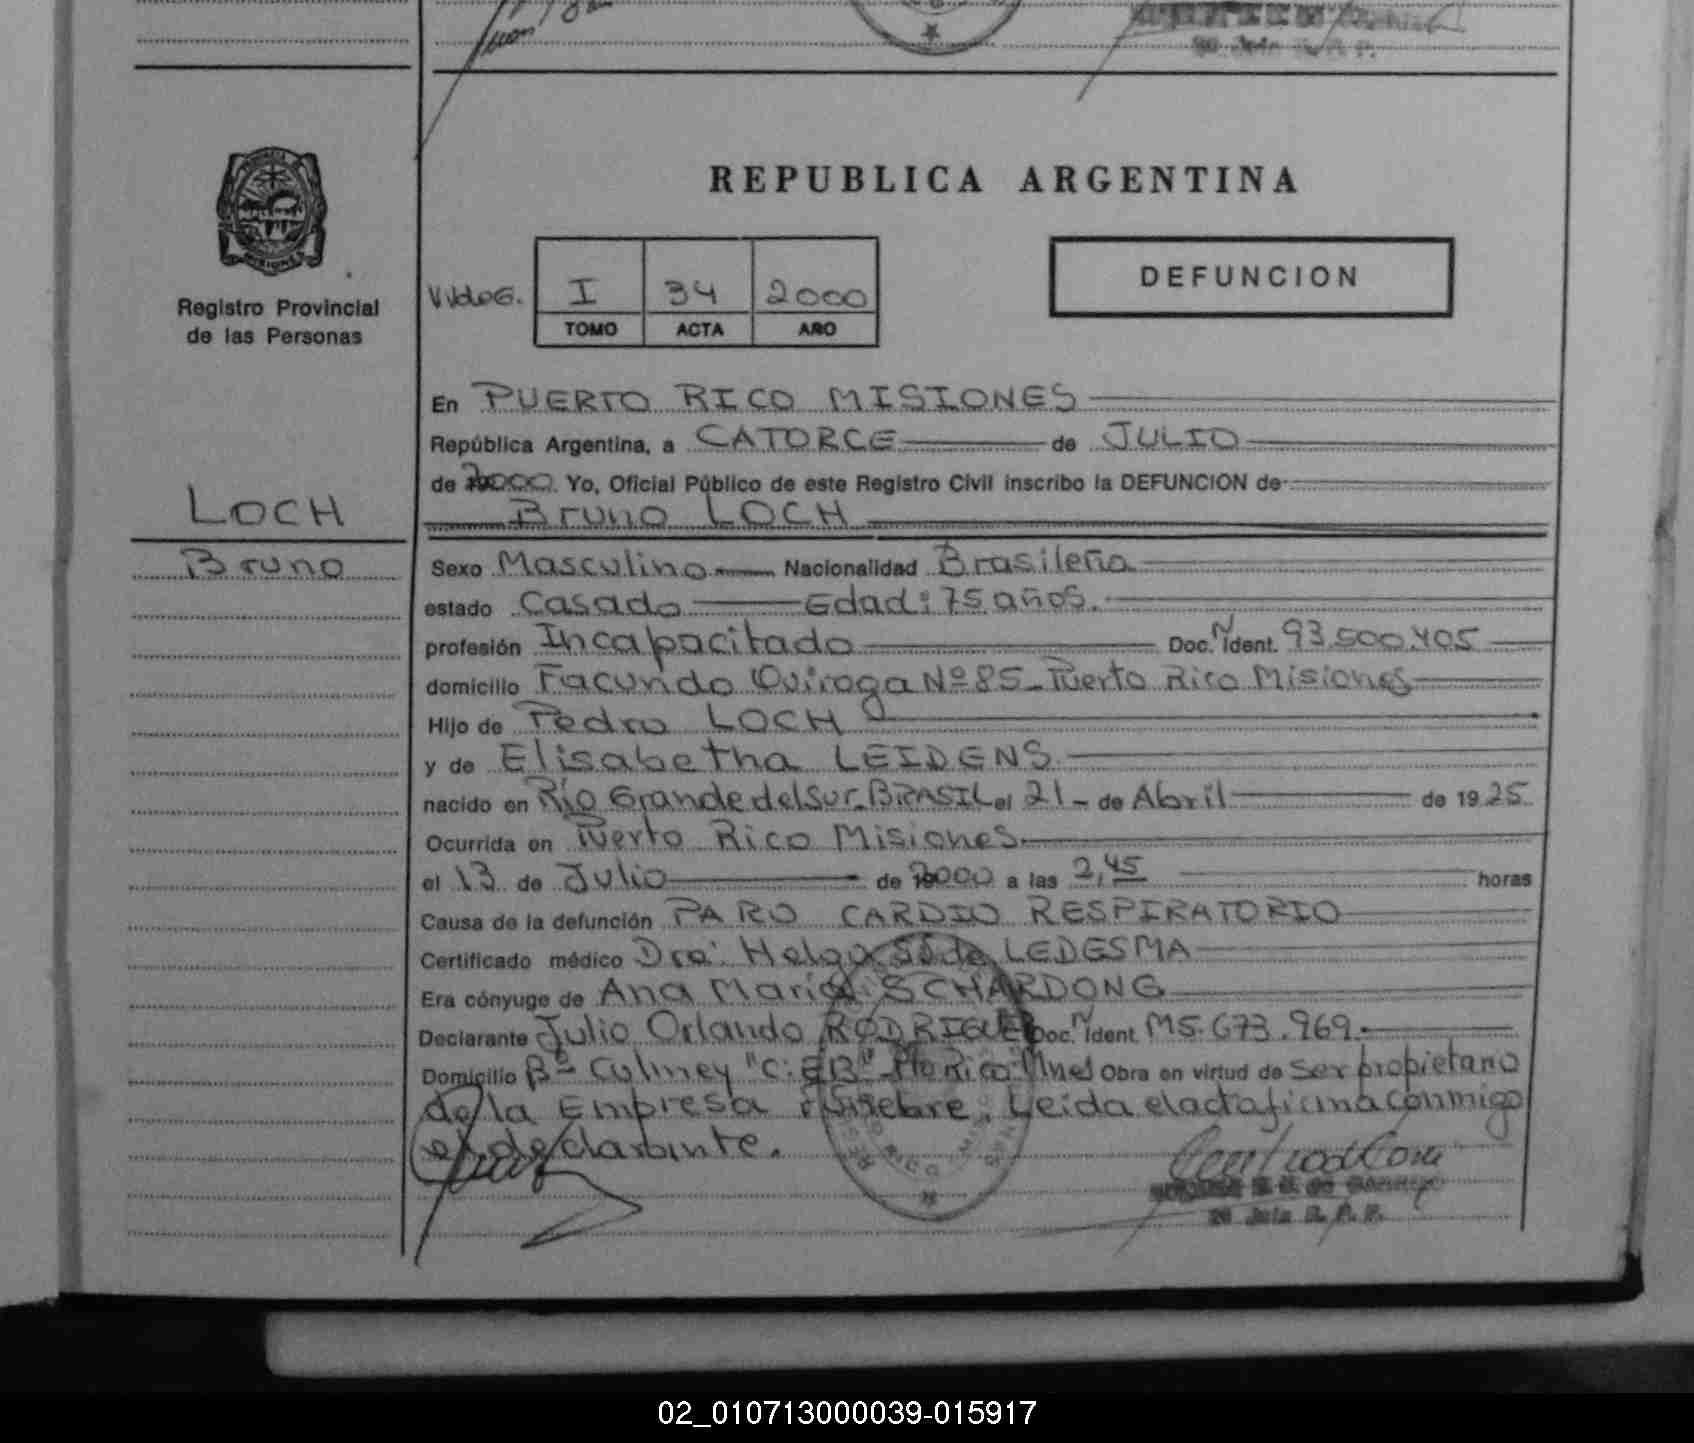 REPUBLICA ARGENTINA
PROVINCIA DE
MISIONES
Registro Provincial
de las Personas
I 34 2000
TOMO ACTA AÑO
DEFUNCION
En PUERTO RICO MISIONES
República Argentina, a CATORCE de JULIO
de 2000 Yo, Oficial Público de este Registro Civil inscribo la DEFUNCION de
LOCH
Bruno LOCH
Bruno
Sexo Masculino Nacionalidad Brasileña
estado Casado Edad: 75 años.
profesión Incapacitado Doc. N Ident. 93.500.405
domicilio Facundo Quiroga Nº 85 - Puerto Rico Misiones
Hijo de Pedro LOCH
y de Elisabetha LEIDENS
nacido en Río Grande del Sur - BRASIL el 21 - de Abril de 1925
Ocurrida en Puerto Rico Misiones
el 13 de Julio de 2000 a las 2,45 horas
Causa de la defunción PARO CARDIO RESPIRATORIO
Certificado médico Dra: Helga S. de LEDESMA
Era cónyuge de Ana María SCHARDONG
Declarante Julio Orlando RODRIGUEZ Doc. N Ident. M5.673.969.
Domicilio Bº Culmey Pto Rico Mnes Obra en virtud de Ser propietario
de la Empresa Funebre. Leida el acta firma conmigo
el declarante.
02_010713000039-015917